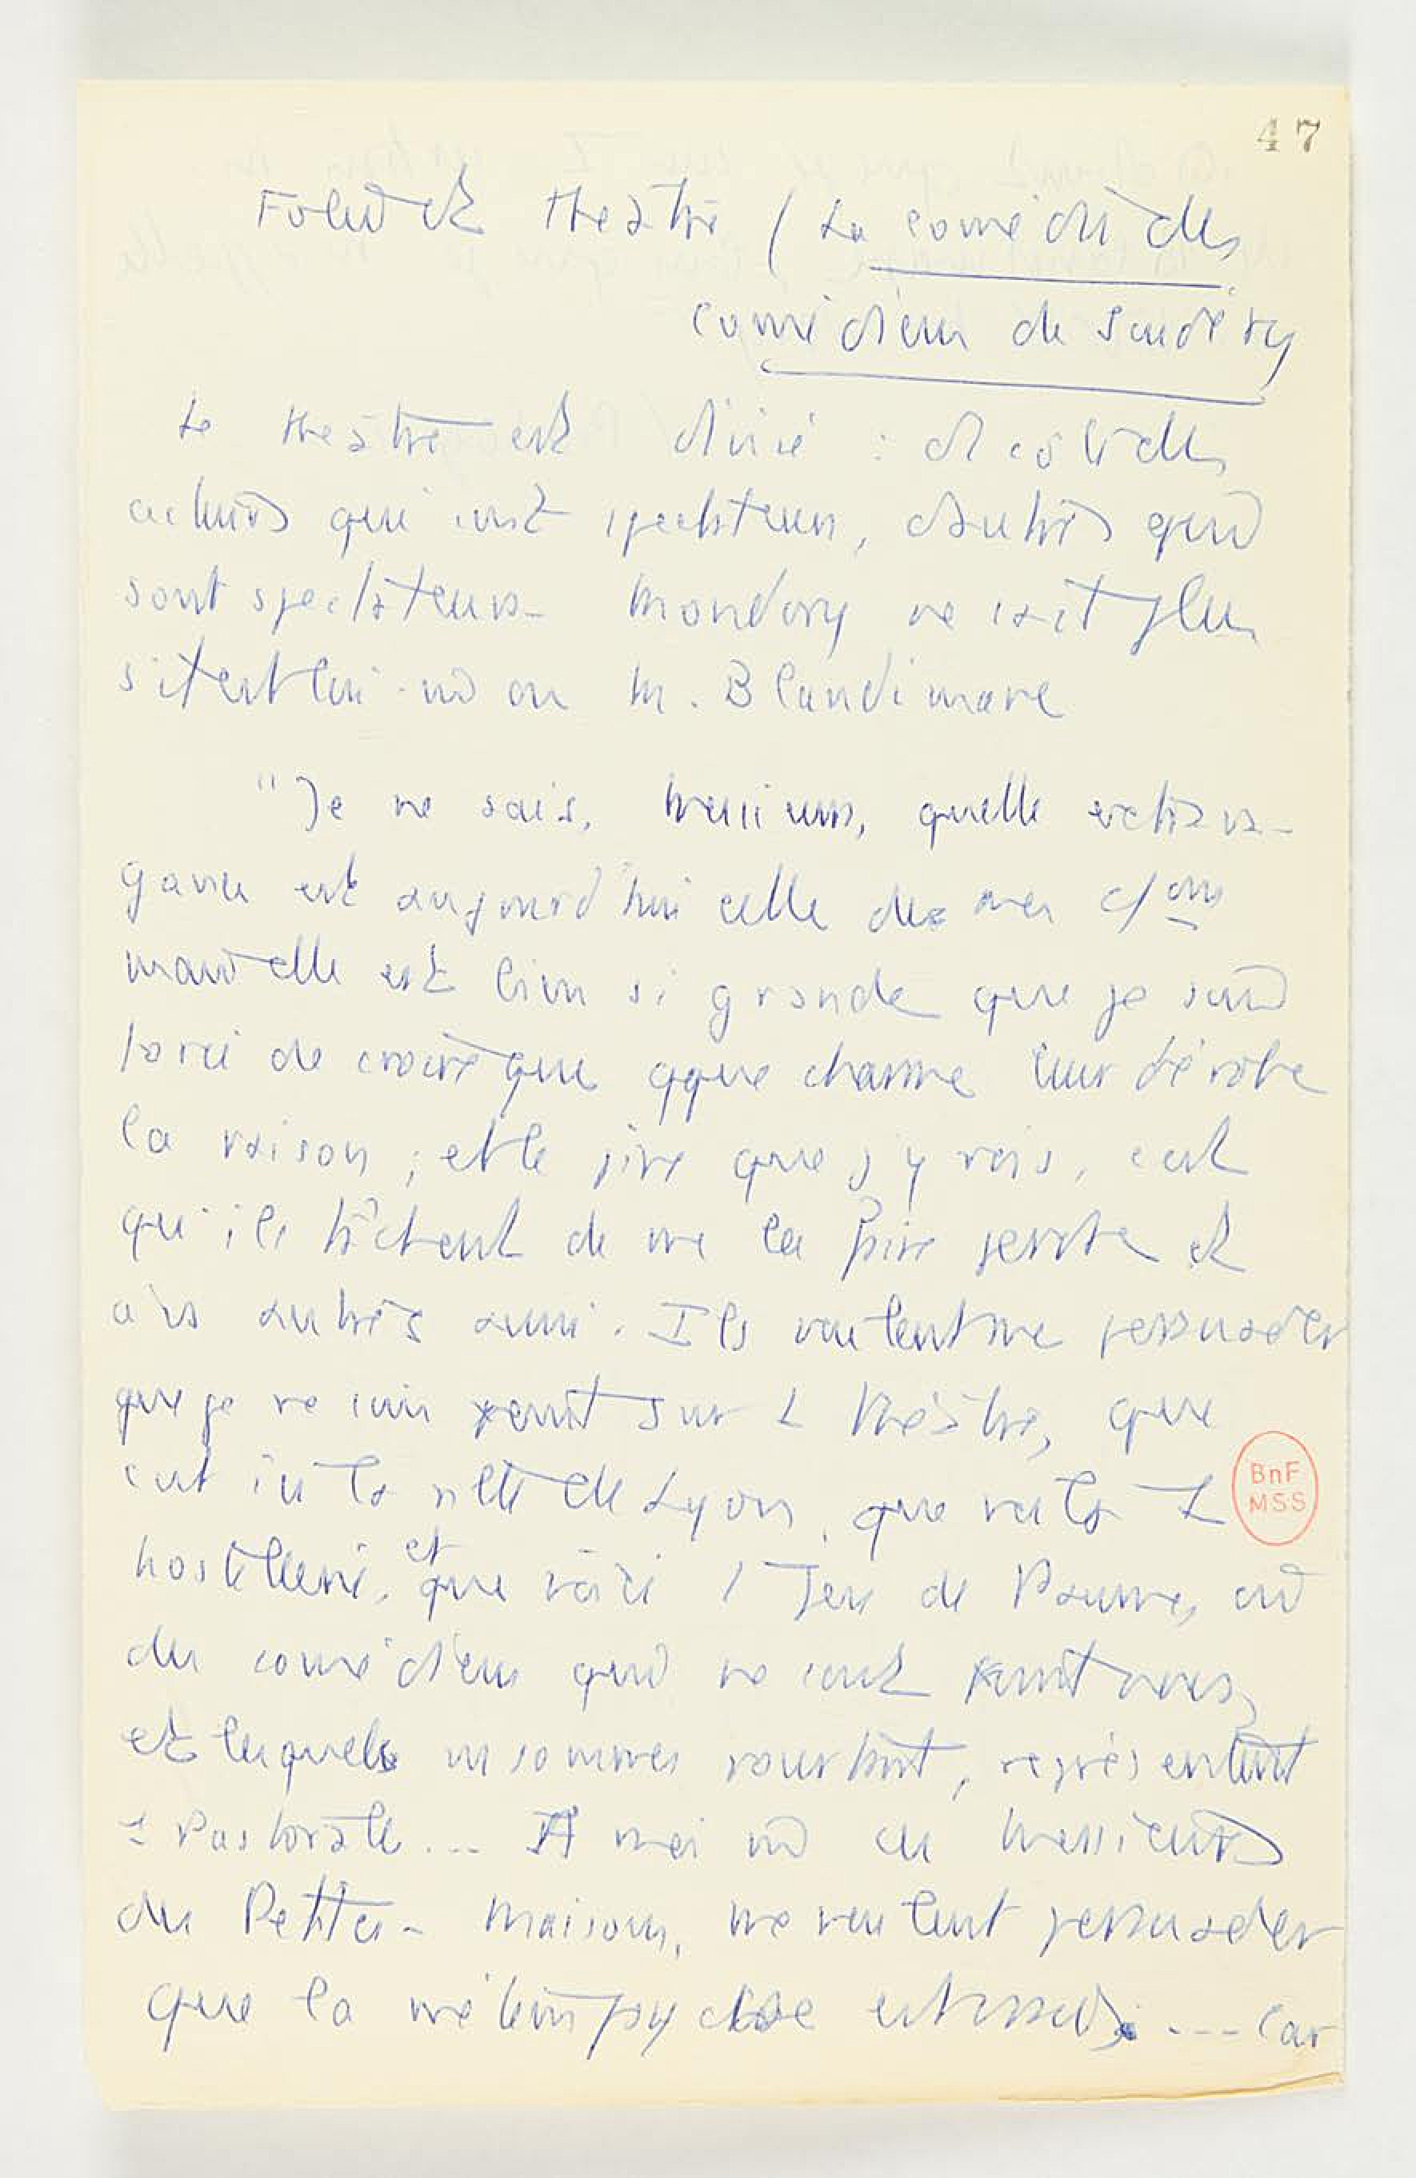 47
Folie et théâtre / La comédie des
comédiens de Scudéry
Le théâtre est divisé : d'un côté des
acteurs qui sont spectateurs, d'autres qui
sont spectateurs. Mondory ne sait plus
s'il est lui-m̂ ou M. Blandimare
"Je ne sais, Messieurs, quelle extrava-
gance est aujourd'hui celle de mes c/ons
mais elle est bien si grande que je suis
forcé de croire que qque charme leur dérobe
la raison ; et le pire que j'y vois, c'est
qu'ils tâchent de me la faire perdre et
à vs autres aussi. Ils veulent me persuader
que je ne suis point sur 1 théâtre, que
c'est ici la ville de Lyon, que voilà 1
hostellerie, et que voici 1 Jeu de Paume, où
des comédiens qui ne sont point nous,
et lesquels ns sommes pourtant, représentent
1 Pastorale... A moi m̂ ces Messieurs
des Petites-Maisons, me veulent persuader
que la métempsychose est .... Car
BnF
MSS